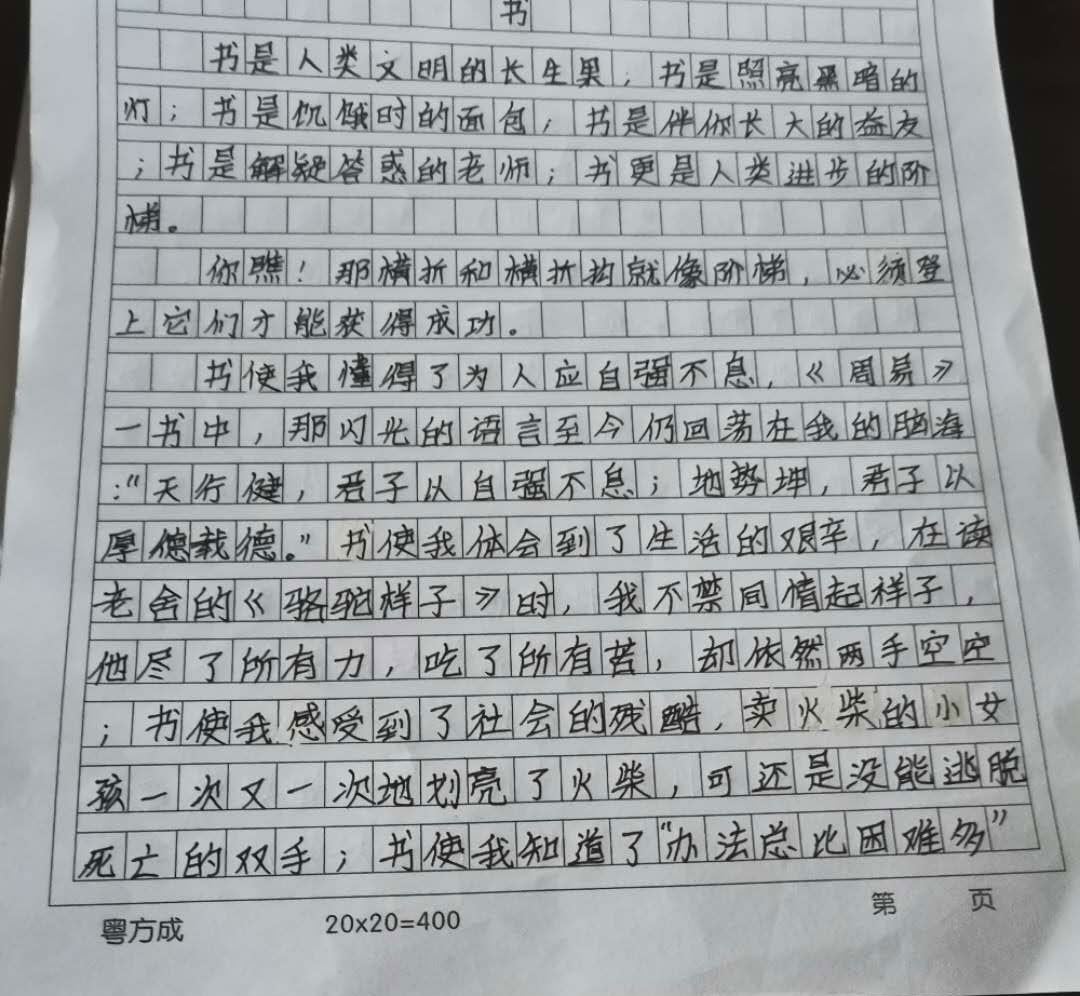 书
书是人类文明的长生果；书是照亮黑暗的
灯；书是饥饿时的面包；书是伴你长大的益友
；书是解疑答惑的老师；书更是人类进步的阶
梯。
你瞧！那横折和横折钩就像阶梯，必须登
上它们才能获得成功。
书使我懂得了为人应自强不息，《周易》
一书中，那闪光的语言至今仍回荡在我的脑海
："天行健，君子以自强不息；地势坤，君子以
厚德载德。"书使我体会到了生活的艰辛，在读
老舍的《骆驼样子》时，我不禁同情起样子，
他尽了所有力，吃了所有苦，却依然两手空空
；书使我感受到了社会的残酷，卖火柴的小女
孩一次又一次地划亮了火柴，可还是没能逃脱
死亡的双手；书使我知道了"办法总比困难多"
粤方成 20x20=400 第 页